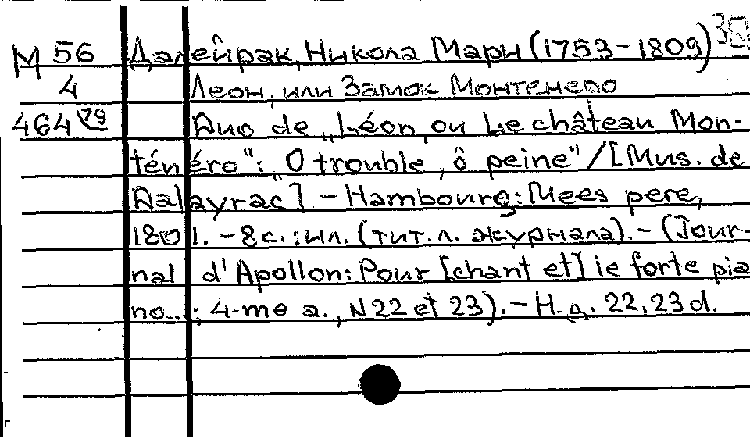 М 56 Далейрак, Никола Мари (1753-1809)
4 Леон, или Замок Монтенеро
464 79 Duo de „Léon, ou Le château Mon-
ténéro": „O trouble, ô peine"/[Mus. de
Dalayrac]. - Hambourg: Mees pere,
1801. - 8 с.: ил. (тит. л. журнала). - (Jour-
nal d'Apollon: Pour [chant et] le forte pia
no...; 4-me a., N 22 et 23). - Н.д. 22, 23 d.